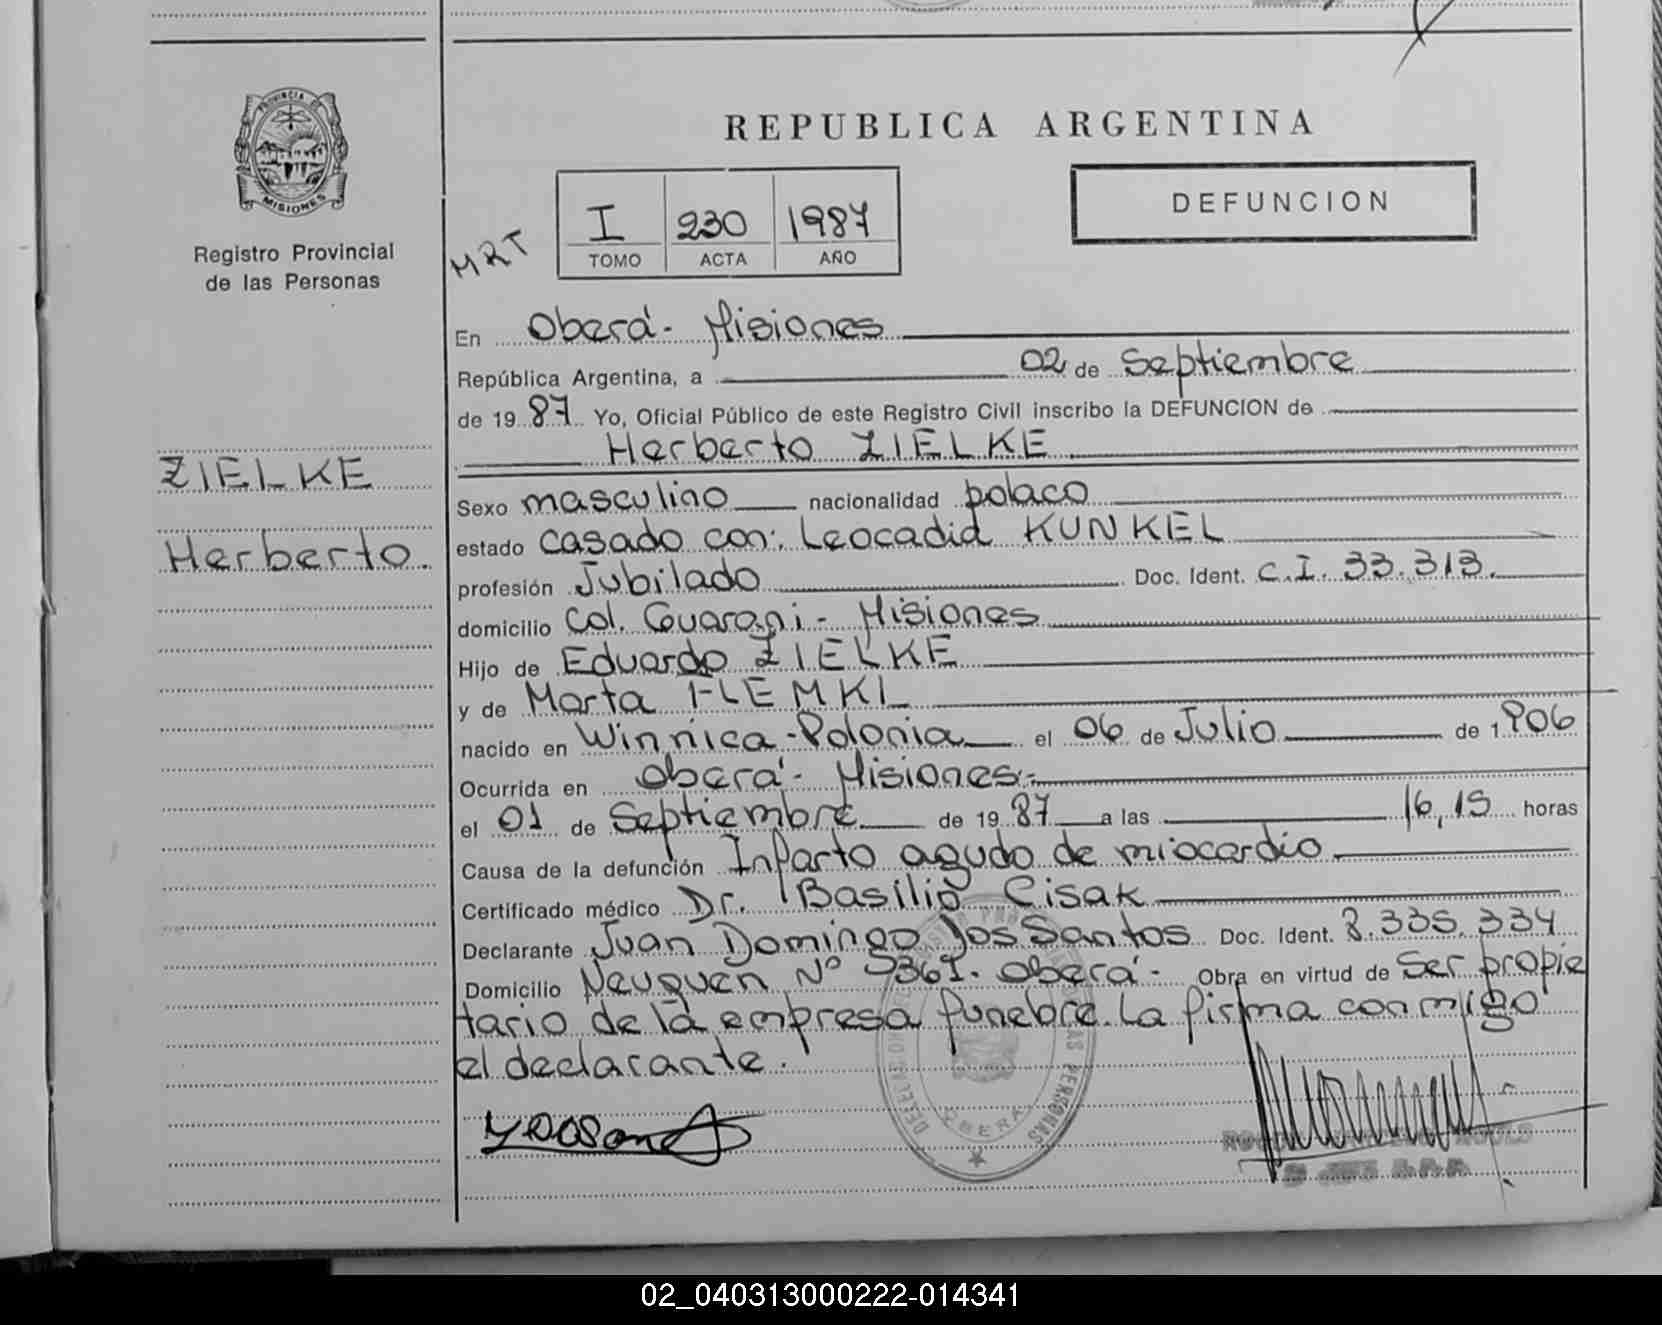 PROVINCIA DE
MISIONES
Registro Provincial
de las Personas
ZIELKE
Herberto.
REPUBLICA ARGENTINA
MRT
I 230 1987
TOMO ACTA AÑO
DEFUNCION
En Oberá - Misiones
República Argentina, a 02 de Septiembre
de 1987 Yo, Oficial Público de este Registro Civil inscribo la DEFUNCION de
Herberto ZIELKE
Sexo masculino nacionalidad polaco
estado casado con: Leocadia KUNKEL
profesión Jubilado Doc. Ident. C.I. 33.313.
domicilio Col. Guarani - Misiones
Hijo de Eduardo ZIELKE
y de Marta FLEMKL
nacido en Winnica - Polonia el 06 de Julio de 1906
Ocurrida en Oberá - Misiones.-
el 01 de Septiembre de 1987 a las 16,15 horas
Causa de la defunción Infarto agudo de miocardio
Certificado médico Dr. Basilio Cisak
Declarante Juan Domingo Dos Santos Doc. Ident. 8.335.334
Domicilio Neuquen Nº 5361. Oberá - Obra en virtud de Ser propie
tario de la empresa funebre. La firma conmigo
el declarante.
PERSONAS
OBERA
02_040313000222-014341